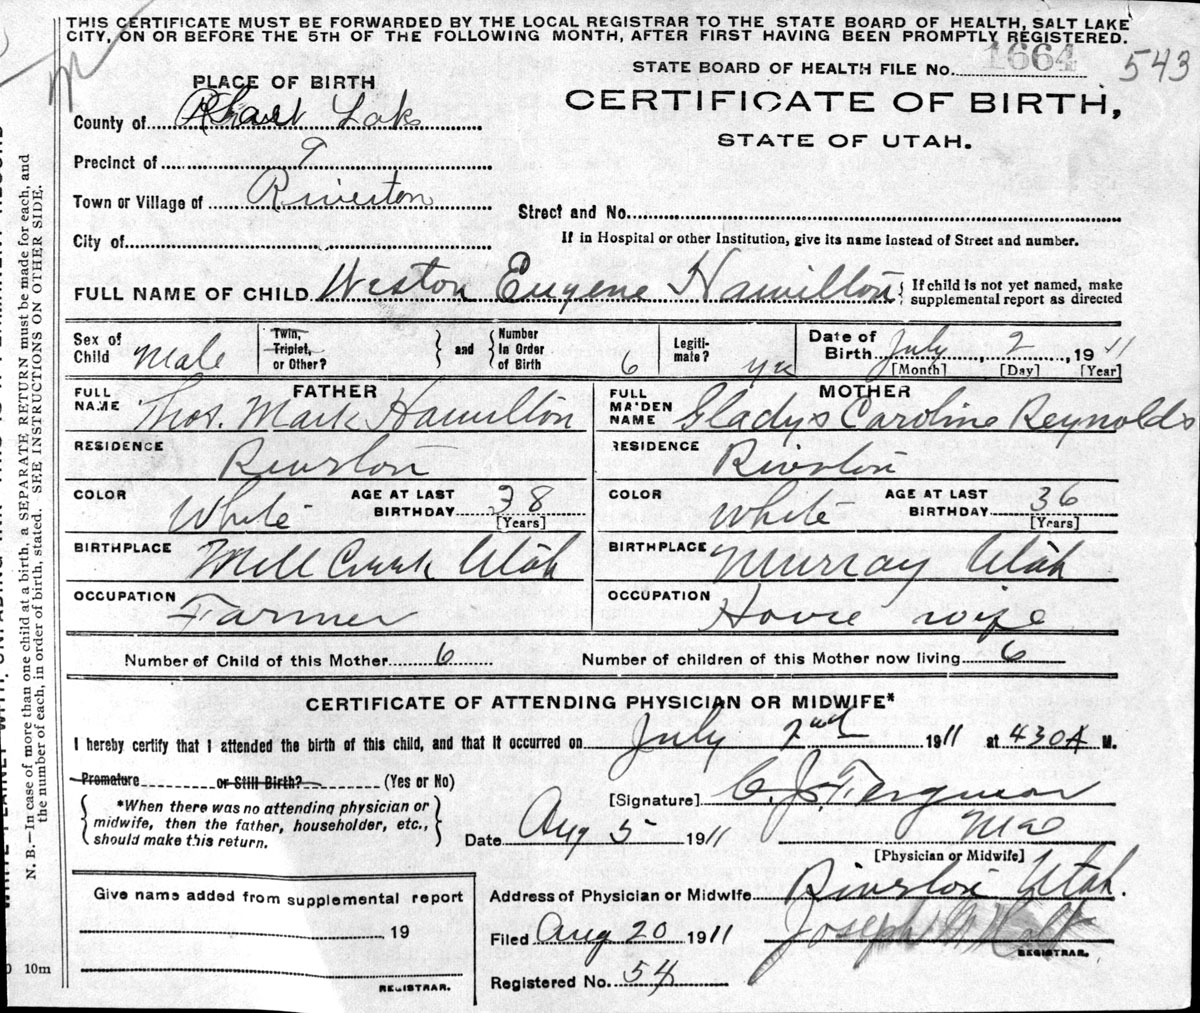 THIS CERTIFICATE MUST BE FORWARDED BY THE LOCAL REGISTRAR TO THE STATE BOARD OF HEALTH, SALT LAKE
CITY, ON OR BEFORE THE 5TH OF THE FOLLOWING MONTH, AFTER FIRST HAVING BEEN PROMPTLY REGISTERED.
STATE BOARD OF HEALTH FILE No. 1664 543
PLACE OF BIRTH
CERTIFICATE OF BIRTH,
STATE OF UTAH.
County of Lake
Precinct of 9
Town or Village of Riverton
Street and No.
City of
If in Hospital or other Institution, give its name instead of Street and number.
FULL NAME OF CHILD Weston Eugene Hamilton { If child is not yet named, make supplemental report as directed
Sex of Child Male Twin, Triplet, or Other? } and { Number In Order of Birth 6 Legiti-mate? yes Date of Birth July, 2, 1911
[Month] [Day] [Year]
FATHER MOTHER
FULL NAME Thos. Mark Hamilton FULL MAIDEN NAME Gladys Caroline Reynolds
RESIDENCE Riverton RESIDENCE Riverton
COLOR White AGE AT LAST BIRTHDAY 38 [Years] COLOR White AGE AT LAST BIRTHDAY 36 [Years]
BIRTHPLACE Mill Creek Utah BIRTHPLACE Murray Utah
OCCUPATION Farmer OCCUPATION House wife
Number of Child of this Mother 6 Number of children of this Mother now living 6
CERTIFICATE OF ATTENDING PHYSICIAN OR MIDWIFE*
I hereby certify that I attended the birth of this child, and that it occurred on July 2nd 1911 at 430 A M.
Premature or Still Birth? (Yes or No)
{ *When there was no attending physician or midwife, then the father, householder, etc., should make this return. }
[Signature] C. J. Ferguson
Date Aug 5 1911
[Physician or Midwife]
Address of Physician or Midwife Riverton Utah.
Give name added from supplemental report
19
REGISTRAR.
Filed Aug 20 1911 Joseph Holt
REGISTRAR.
Registered No. 54
10m
N. B.—In case of more than one child at a birth, a SEPARATE RETURN must be made for each, and
the number of each, in order of birth, stated. SEE INSTRUCTIONS ON OTHER SIDE.